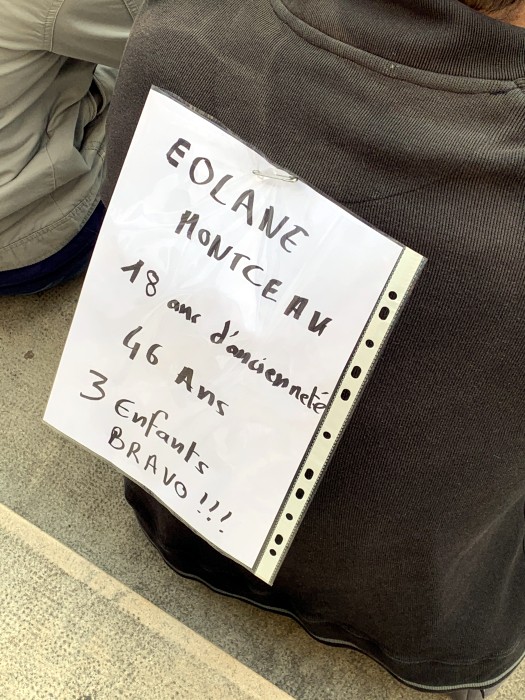 EOLANE
MONTCEAU
18 ans d'ancienneté
46 Ans
3 Enfants
BRAVO !!!